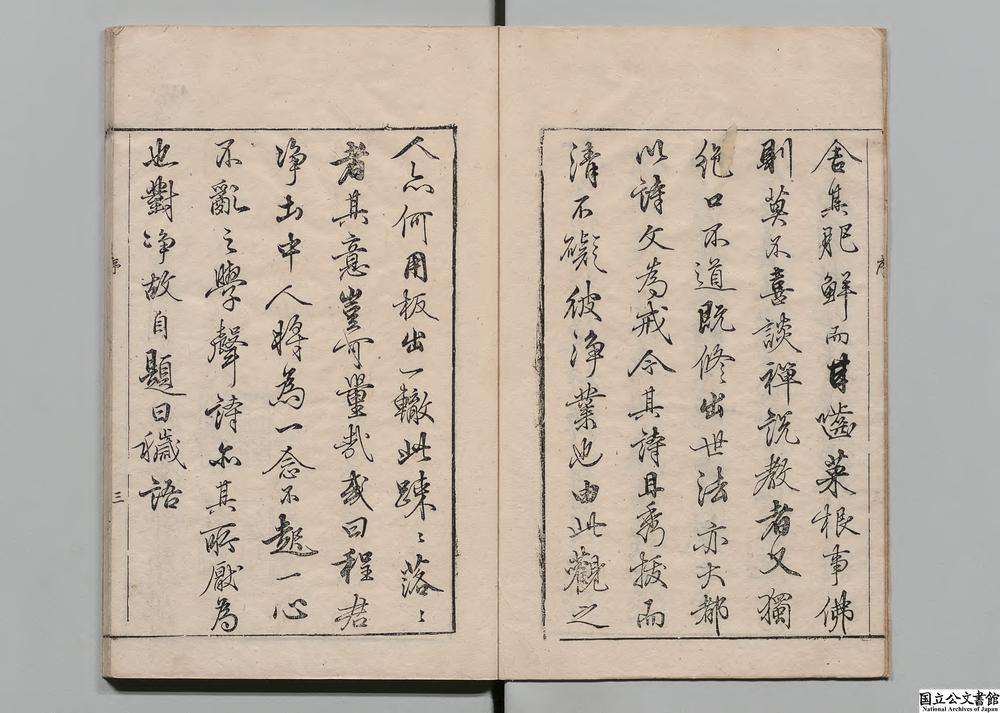 舍其肥鮮而甘嚙菜根事佛
則莫不喜談禪説教者又獨
絶口不道既修出世法亦大都
以詩文為戒今其詩且秀拔而
清不礙彼淨業也由此觀之
人亦何用板出一轍此踈〻落〻
者其意豈可量哉或曰程君
淨土中人將為一念不起一心
不亂之學聲詩亦其所厭為
也對淨故自題曰穢語
序
序
三
国立公文書館
National Archives of Japan